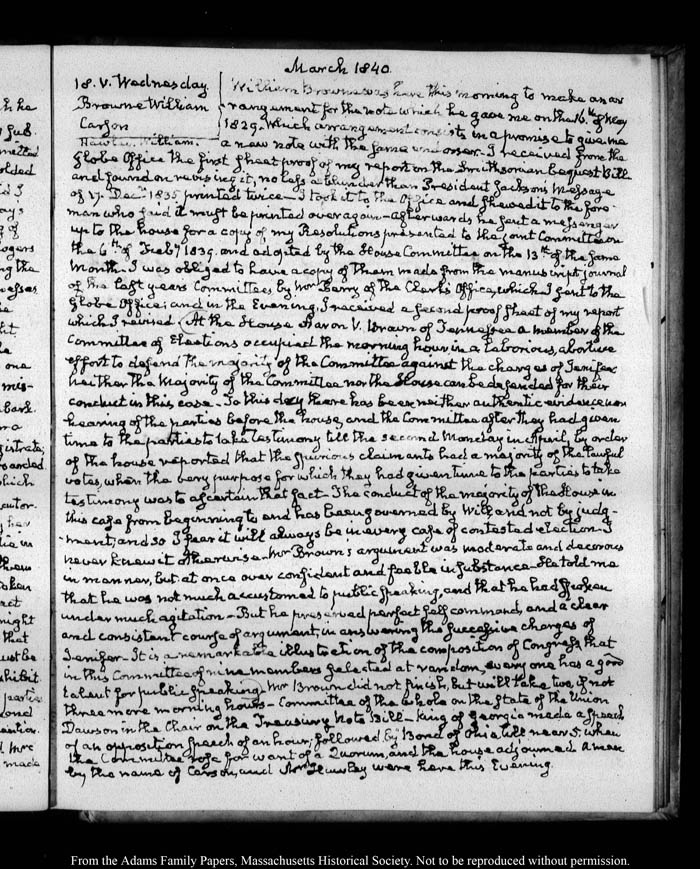 March 1840.
18. V. Wednesday.
Browne William
Carson
Hawley. William.
William Browne was here this morning to make an ar
rangement for the note which he gave me on the 16th. of May
1829. Which arrangement consists in a promise to give me
a new note with the same endorser. I received from the
Globe Office the first sheet proof of my report on the Smithsonian bequest Bill
and found on revising it, no less a blunder than President Jackson's Message
of 17. Decr. 1835 printed twice— I took it to the Office and shewed it to the fore-
man who said it must be printed over again— afterwards he sent a messenger
up to the house for a copy of my Resolutions presented to the joint Committee on
the 6th. of Feby 1839. and adopted by the House Committee on the 13th. of the same
Month. I was obliged to have a copy of them made from the manuscript journal
of the last years Committees by Mr Berry of the Clerk's Office, which I sent to the
Globe Office; and in the Evening, I received a second proof sheet of my report
which I revised. At the House Aaron V. Brown of Tennessee a member of the
Committee of Elections occupied the morning hour, in a laborious, abortive
effort to defend the majority of the Committee against the charges of Jenifer
neither the Majority of the Committee nor the House can be defended for their
conduct in this case. To this day there has been neither authentic evidence nor
hearing of the parties before the house, and the Committee after they had given
time to the parties to take testimony till the second Monday in April, by order
of the house reported that the spurious claimants had a majority of the lawful
votes, when the very purpose for which they had given time to the parties to take
testimony was to ascertain that fact— The conduct of the majority of the House in
this case from beginning to end has been governed by Will and not by judg-
-ment, and so I fear it will always be in every case of contested election. I
never knew it otherwise— Mr Brown's argument was moderate and decorous
in manner, but at once over confident and feeble in substance— He told me
that he was not much accustomed to public speaking, and that he had spoken
under much agitation— But he preserved perfect self command, and a clear
and consistent course of argument, in answering the successive charges of
Jenifer— It is a remarkable illustration of the composition of Congress, that
in this Committee of nine members selected at random, every one has a good
talent for public speaking— Mr Brown did not finish, but will take two if not
three more morning hours— Committee of the whole on the State of the Union
Dawson in the Chair on the Treasury Note Bill— King of Georgia made a speech
of an opposition speech of an hour; followed by Bond of Ohio till near 5. when
the Committee rose for want of a Quorum, and the house adjourned. A man
by the name of Carson, and Mr Hawley were here this Evening.
From the Adams Family Papers, Massachusetts Historical Society. Not to be reproduced without permission.